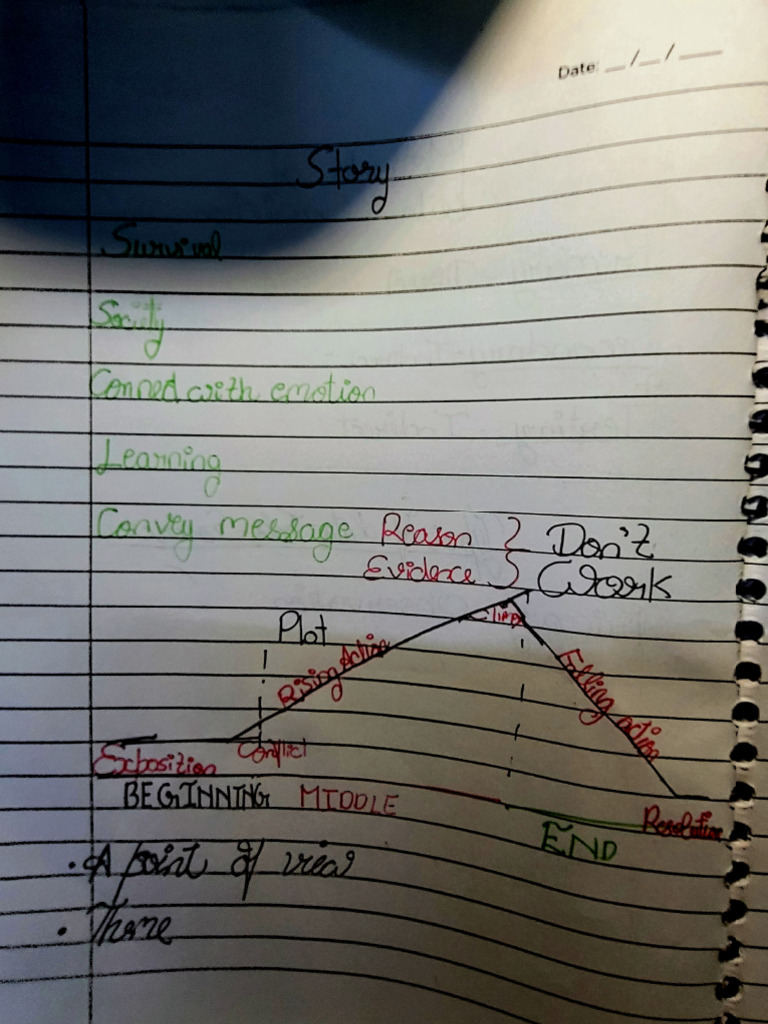 Date: __/__/___
Story
Survival
Society
Conned with emotion
Learning
Convey message Reason } Don't
Evidence } Work
Plot
Rising Action
Falling action
Conflict
Exposition
BEGINNING MIDDLE
Resolution
END
. A point of view
. Theme